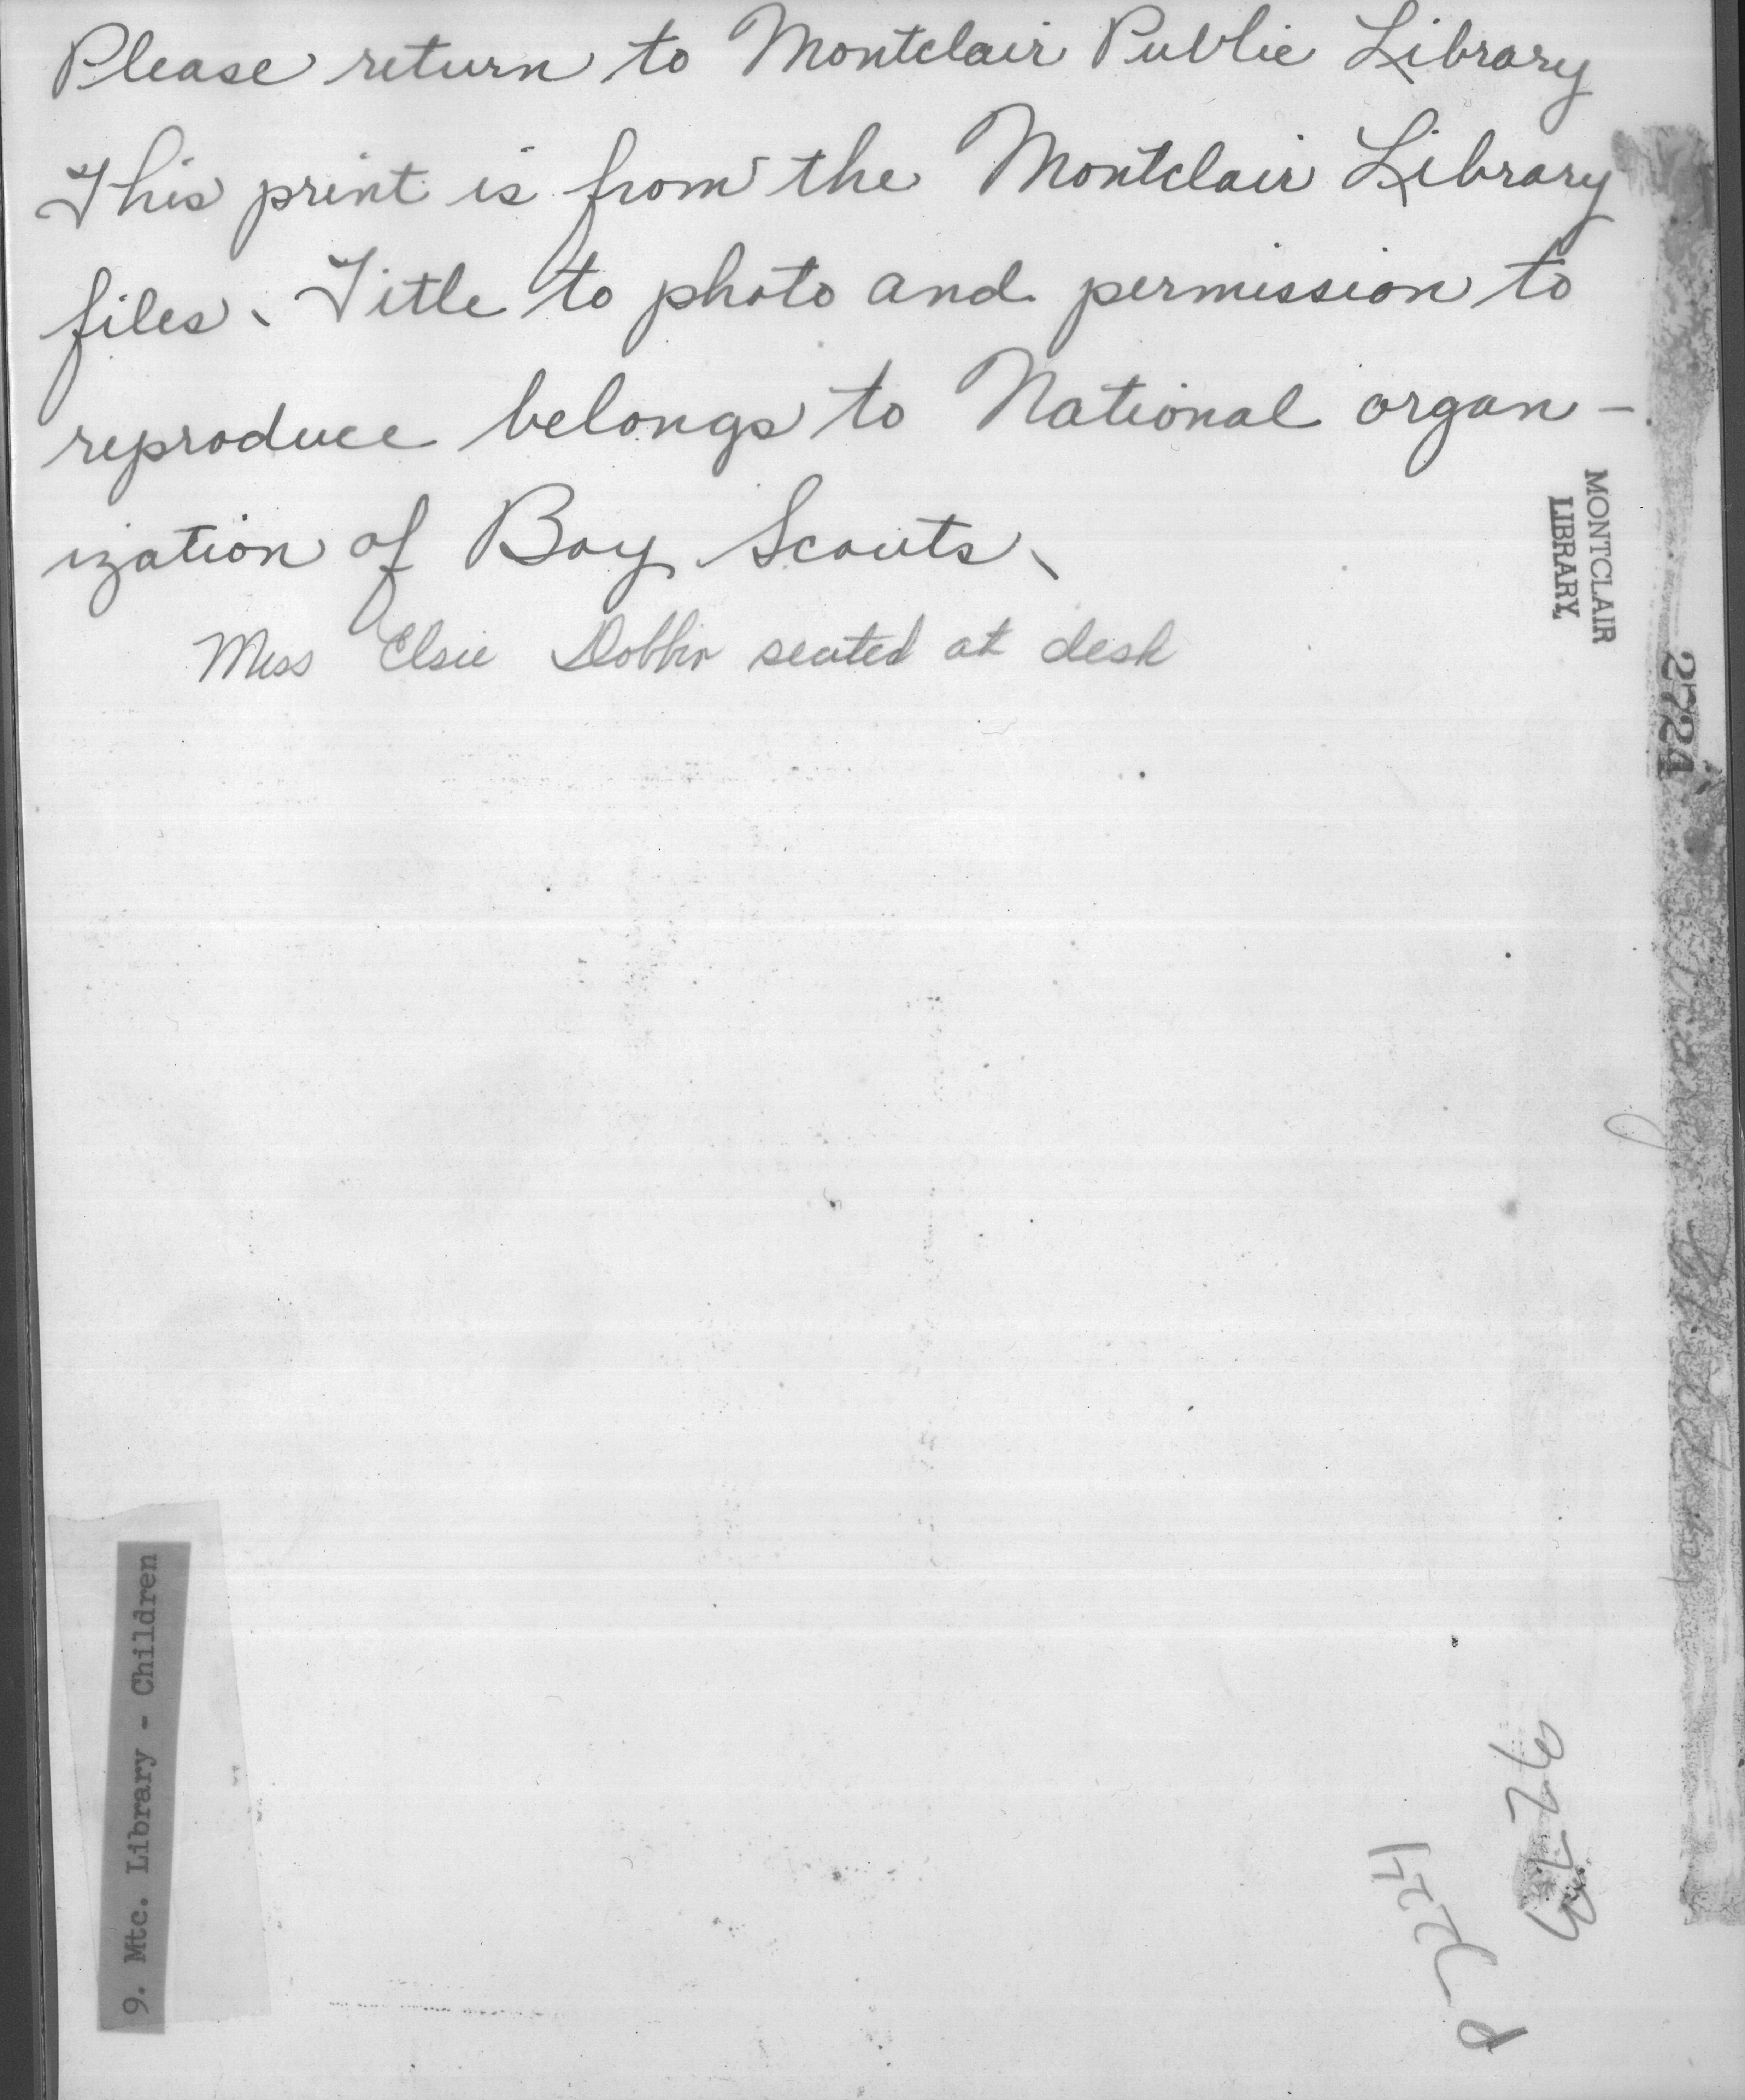 Please return to Montclair Public Library
This print is from the Montclair Library
files. Title to photo and permission to
reproduce belongs to National organ-
ization of Boy Scouts.
Miss Elsie Dobbin seated at desk
MONTCLAIR
LIBRARY
2724
3273
9. Mtc. Library - Children